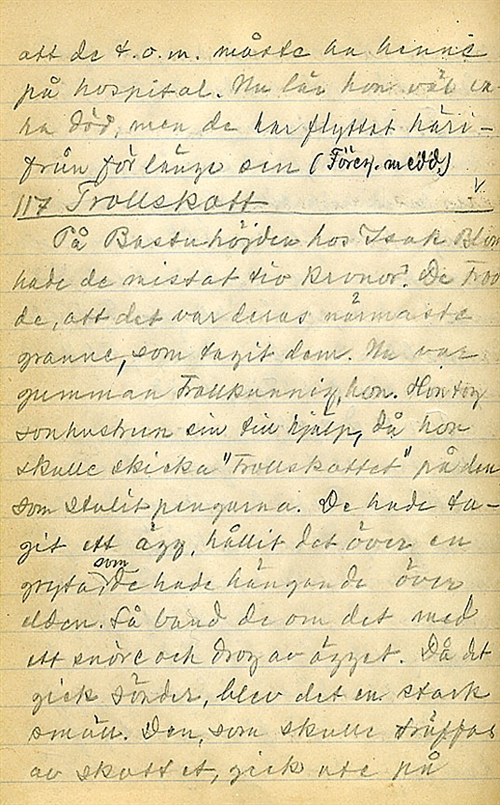 att de t.o.m. måste ha henne
på hospital. Nu lär hon väl va-
ra död, men de har flyttat häri-
från för länge sen (Föreg. medd.)
117 Trollskott
På Bastuhöjden hos Isak Blom
hade de mistat tio kronor. De trod
de, att det var deras närmaste
granne, som tagit dem. Nu var
gumman trollkunnig, hon. Hon tog
sonhustrun sin till hjälp, då hon
skulle skicka "Trollskottet" på den
som stulit pengarna. De hade ta-
git ett ägg, hållit det över en
gryta, som de hade hängande över
elden. Så band de om det med
ett snöre och drog av ägget. Då det
gick sönder, blev det en stark
smäll. Den, som skulle träffas
av skottet, gick ute på